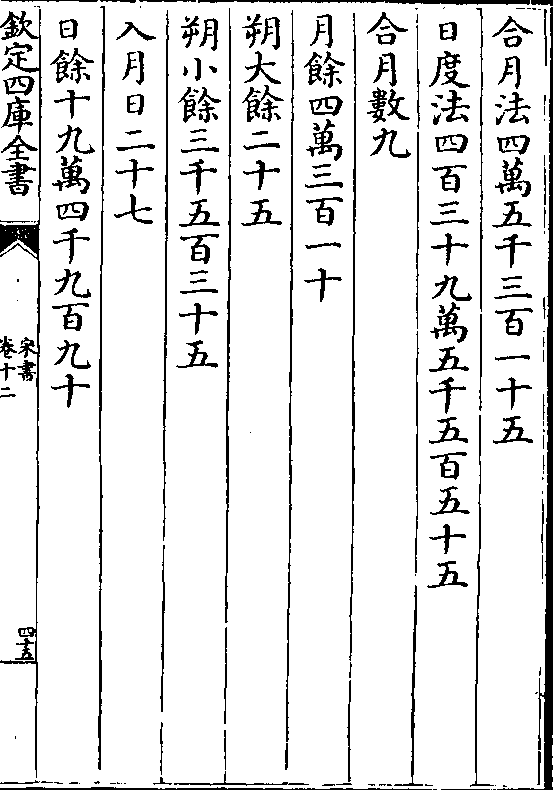 合月法四萬五千三百一十五
日度法四百三十九萬五千五百五十五
合月數九
月餘四萬三百一十
朔大餘二十五
朔小餘三千五百三十五
入月日二十七
日餘十九萬四千九百九十
欽定四庫全書
宋書
卷十二
四十五